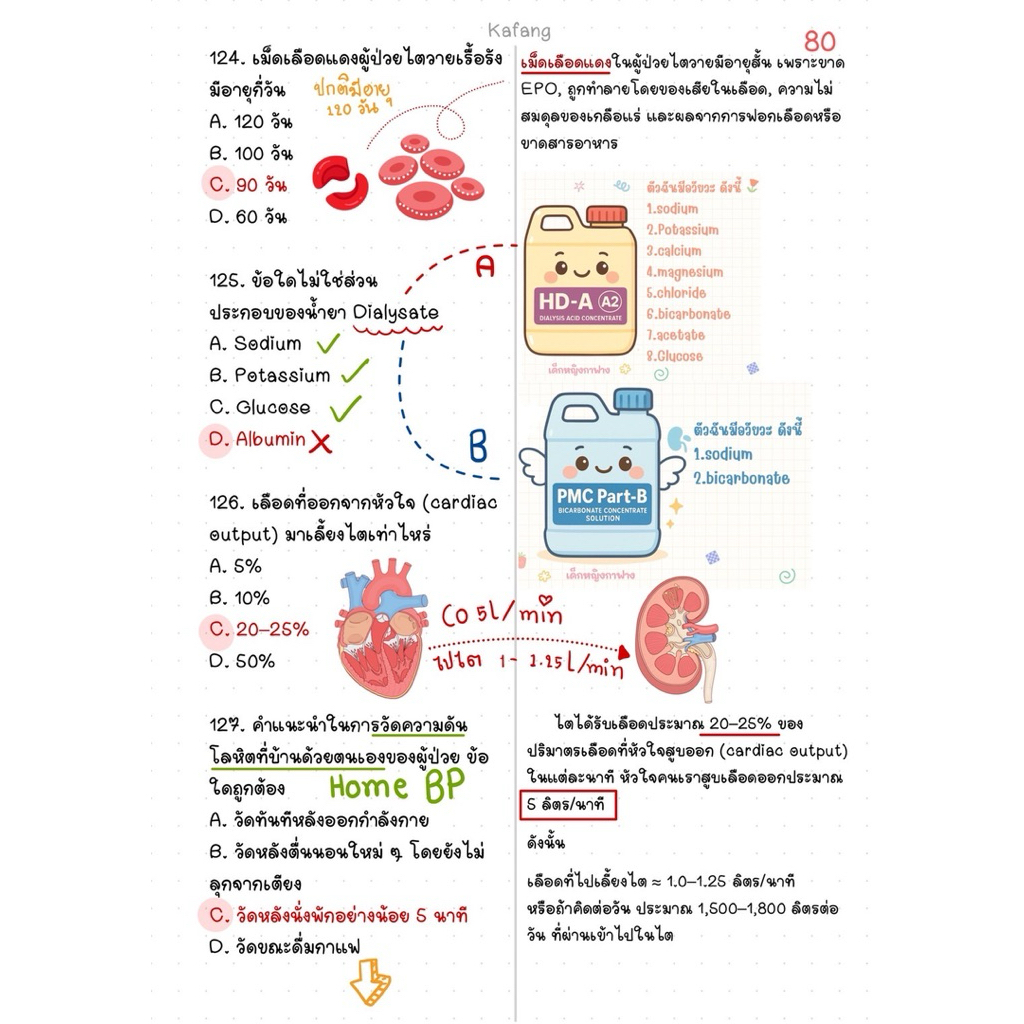 Kafang
80
124. เม็ดเลือดแดงผู้ป่วยไตวายเรื้อรัง
มีอายุกี่วัน
ปกติมีอายุ
120 วัน
A. 120 วัน
B. 100 วัน
C. 90 วัน
D. 60 วัน
เม็ดเลือดแดงในผู้ป่วยไตวายมีอายุสั้น เพราะขาด
EPO, ถูกทำลายโดยของเสียในเลือด, ความไม่
สมดุลของเกลือแร่ และผลจากการฟอกเลือดหรือ
ขาดสารอาหาร
125. ข้อใดไม่ใช่ส่วน
ประกอบของน้ำยา Dialysate
A. Sodium
B. Potassium
C. Glucose
D. Albumin
A
B
HD-A A2
DIALYSIS ACID CONCENTRATE
เด็กหญิงกาฟาง
ตัวฉันมีอวัยวะ ดังนี้
1.sodium
2.Potassium
3.calcium
4.magnesium
5.chloride
6.bicarbonate
7.acetate
8.Glucose
PMC Part-B
BICARBONATE CONCENTRATE
SOLUTION
เด็กหญิงกาฟาง
ตัวฉันมีอวัยวะ ดังนี้
1.sodium
2.bicarbonate
126. เลือดที่ออกจากหัวใจ (cardiac
output) มาเลี้ยงไตเท่าไหร่
A. 5%
B. 10%
C. 20–25%
D. 50%
CO 5L/min
ไปไต 1 - 1.25 L/min
ไตได้รับเลือดประมาณ 20–25% ของ
ปริมาตรเลือดที่หัวใจสูบออก (cardiac output)
ในแต่ละนาที หัวใจคนเราสูบเลือดออกประมาณ
5 ลิตร/นาที
ดังนั้น
เลือดที่ไปเลี้ยงไต ≈ 1.0–1.25 ลิตร/นาที
หรือถ้าคิดต่อวัน ประมาณ 1,500–1,800 ลิตรต่อ
วัน ที่ผ่านเข้าไปในไต
127. คำแนะนำในการวัดความดัน
โลหิตที่บ้านด้วยตนเองของผู้ป่วย ข้อ
ใดถูกต้อง
Home BP
A. วัดทันทีหลังออกกำลังกาย
B. วัดหลังตื่นนอนใหม่ ๆ โดยยังไม่
ลุกจากเตียง
C. วัดหลังนั่งพักอย่างน้อย 5 นาที
D. วัดขณะดื่มกาแฟ